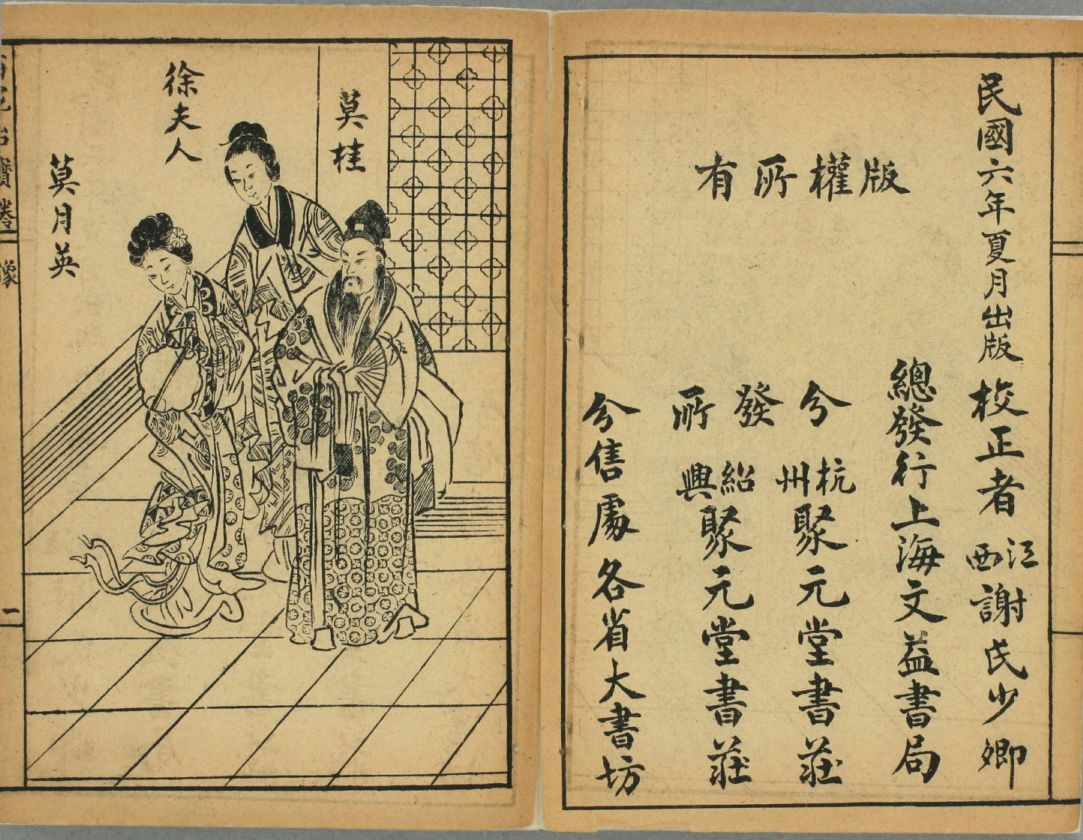 版權所有
民國六年夏月出版
校正者江西謝氏少卿
總發行上海文益書局
分發所
杭州聚元堂書莊
紹興聚元堂書莊
分售處各省大書坊
莫桂
徐夫人
莫月英
寶卷
像
一